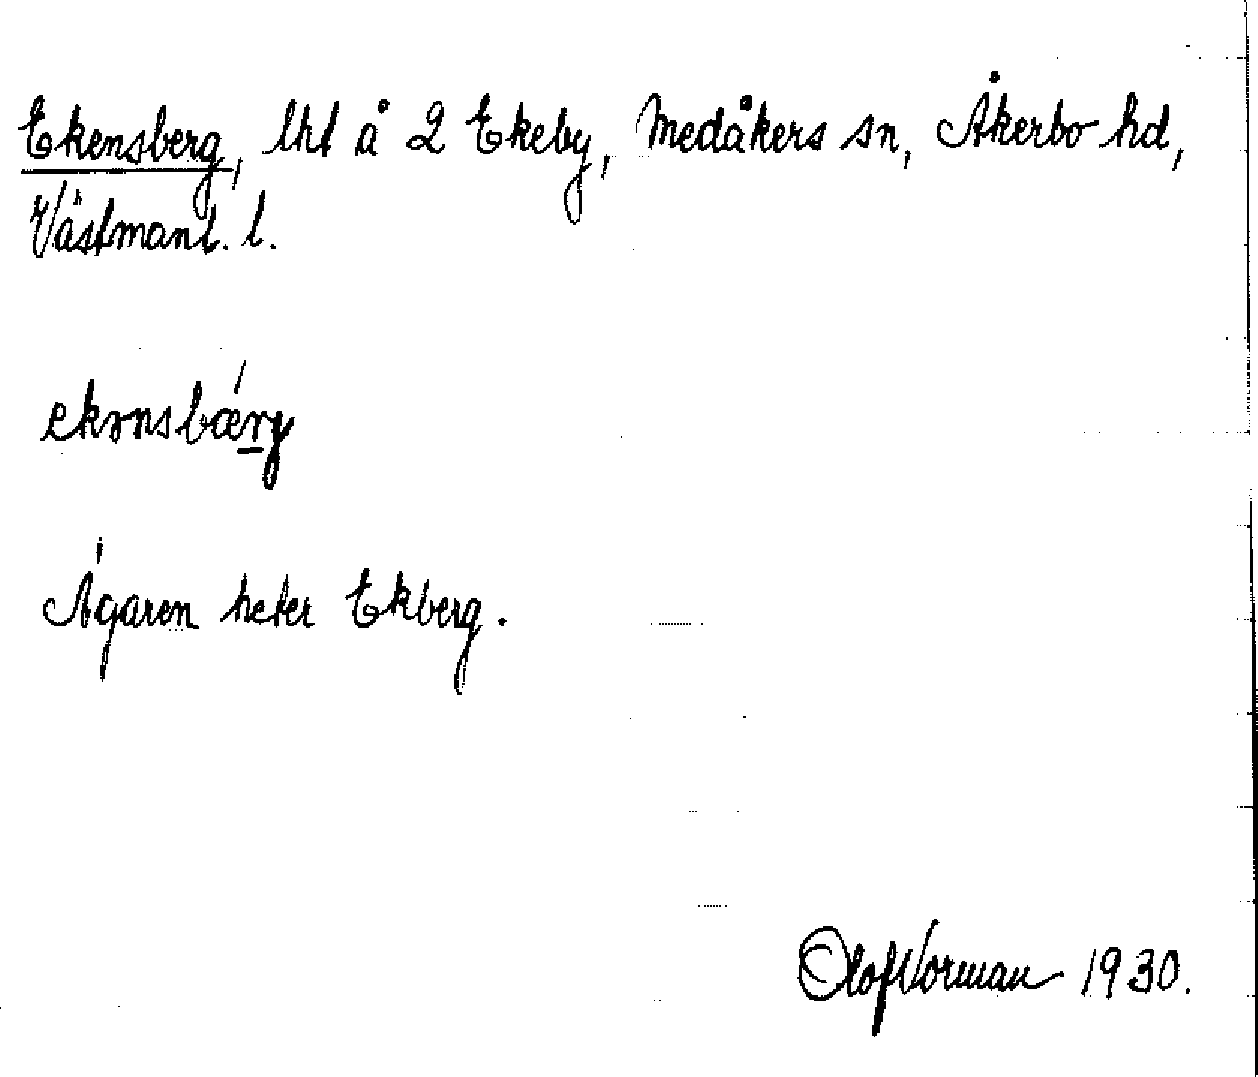 Ekensberg, lht å 2 Ekeby, Medåkers sn, Åkerbo hd,
Västmanl. l.
ekənsbærg
Ägaren heter Ekberg.
Olof Norman 1930.